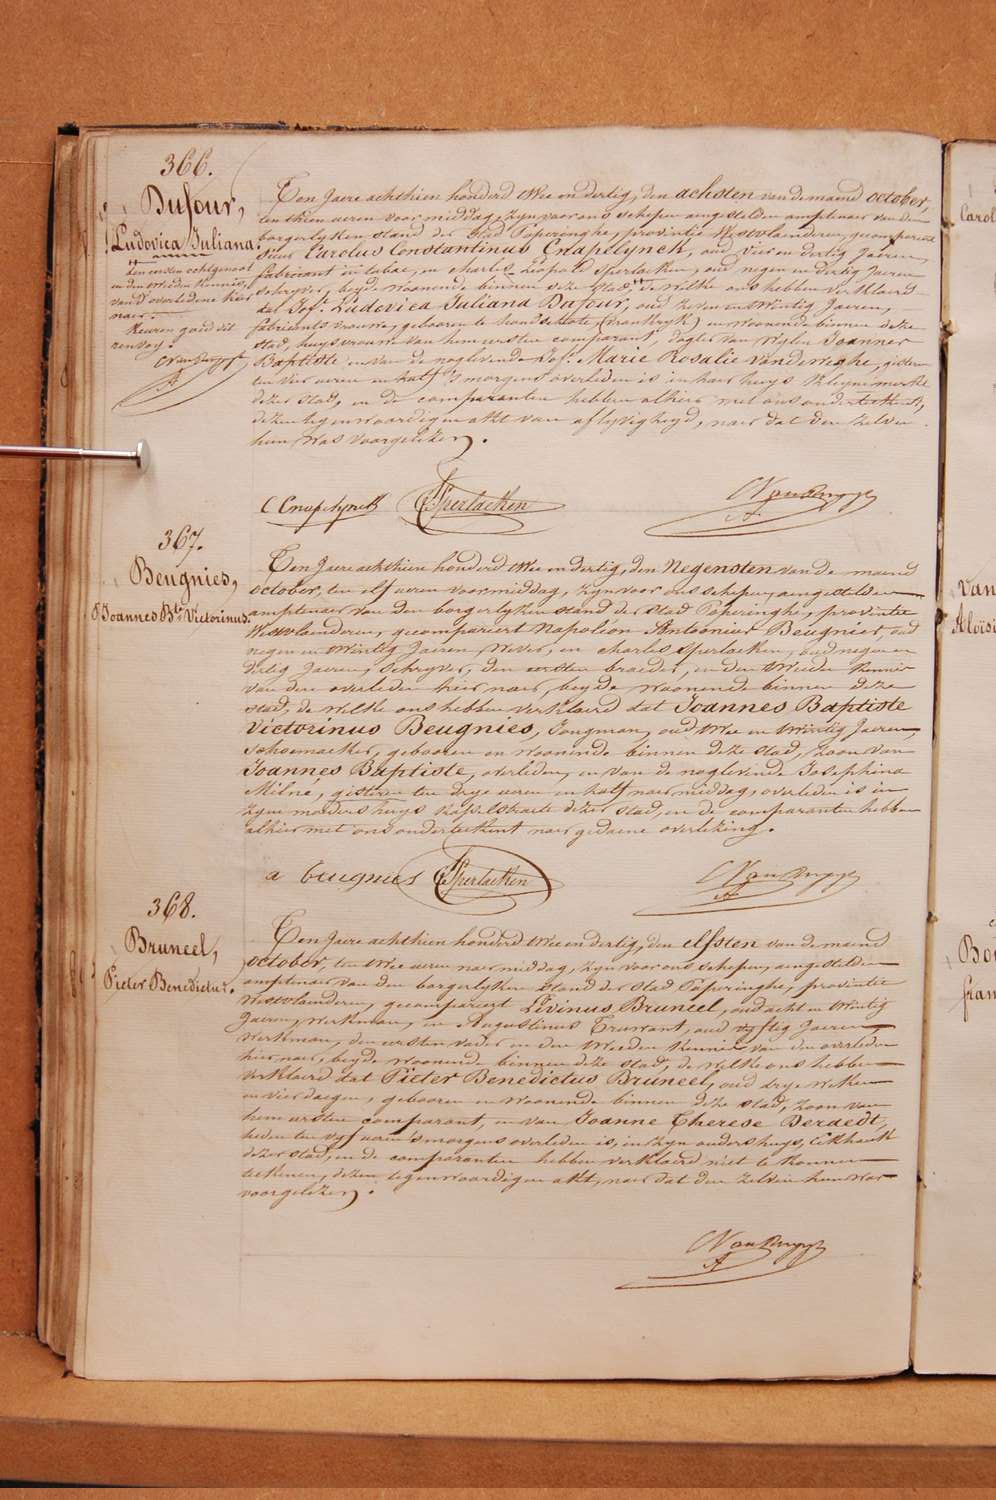 366.
Dufour,
Ludovica Juliana.
den eersten echtgenoot
en den tweeden kennis,
van d'overledene hier
naer.
Keuren goed dit
renvoy.
Ten Jaere achthien honderd twee en dertig, den achsten van de maend october,
ten thien ueren voormiddag, zyn voor ons schepen aengestelden amptenaer van den
borgerlyken stand der stad Poperinghe, provintie Westvlaenderen, gecompareerd
Sieur Carolus Constantinus Cnapelynck, oud vier en dertig Jaeren,
fabricant in tabac, en charles Leopold Sperlaeken, oud negen en dertig Jaeren
schryver, beyde woonende binnen deze stad, de welke ons hebben verklaerd
dat Jof. Ludovica Juliana Dufour, oud zeven en twintig Jaeren,
fabricants vrouwe, gebooren te hondschote (vrankryk) en woonende binnen deze
stad, huysvrouwe van hem eersten comparant, dogter van wylen Joannes
Baptiste en van de noglevende Jof. Marie Rosalie Vandeweghe, gisteren
ten vier ueren en half 's morgens overleden is in haer huys kleyne merkt
dezer stad, en de comparanten hebben alhier met ons onderteekent,
dezen tegenwoordigen akt van aflyvigheyd, naer dat den zelven
hun was voorgelezen.
C Cnapelynck CSperlaeken
367.
Beugnies,
Joannes Bte Victorinus.
Ten Jaere achthien honderd twee en dertig, den Negensten van de maend
october, ten elf ueren voormiddag, zyn voor ons schepen, aengestelden
amptenaer van den borgerlyken stand der stad Poperinghe, provintie
Westvlaenderen, gecompareert Napoléon Antoonius Beugnies, oud
negen en twintig Jaeren, wever, en charles Sperlaeken, oud negen en
dertig Jaeren, schryver, den eersten broeder, en den tweeden kennis
van den overleden hier naer, beyde woonende binnen deze
stad, de welke ons hebben verklaerd dat Joannes Baptiste
Victorinus Beugnies, Jongman, oud twee en twintig Jaeren,
schoemaeker, gebooren en woonende binnen deze stad, zoon van
Joannes Baptiste, overleden, en van de noglevende Josephina
Milne, gisteren ten drye ueren en half naermiddag, overleden is in
zyne moeders huys Casselstraete dezer stad, en de comparanten hebben
alhier met ons onderteekent naer gedaene overlezing.
a beugnies CSperlaeken
368.
Bruneel,
Pieter Benedictus.
Ten Jaere achthien honderd twee en dertig, den elfsten van de maend
october, ten twee ueren naermiddag, zyn voor ons schepen, aengestelden
amptenaer van den borgerlyken stand der stad Poperinghe, provintie
Westvlaenderen, gecompareert Livinus Bruneel, oud acht en twintig
Jaeren, werkman, en Augustinus Truwant, oud vyftig Jaeren,
werkman, den eersten vader en den tweeden kennis van den overleden
hier naer, beyde woonende binnen deze stad, de welke ons hebben
verklaerd dat Pieter Benedictus Bruneel, oud drye weken
en vier daegen, gebooren en woonende binnen deze stad, zoon van
hem eersten comparant, en van Joanne Therese Berdedt,
heden ten vyf ueren 's morgens overleden is, in zyn ouders huys, Eekhoek
dezer stad, en de comparanten hebben verklaerd niet te konnen
teekenen, dezen tegenwoordigen akt, naer dat den zelven hun was
voorgelezen.